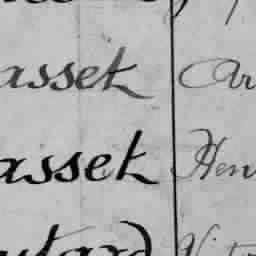 asset Ar
asset Hen
utard Vit